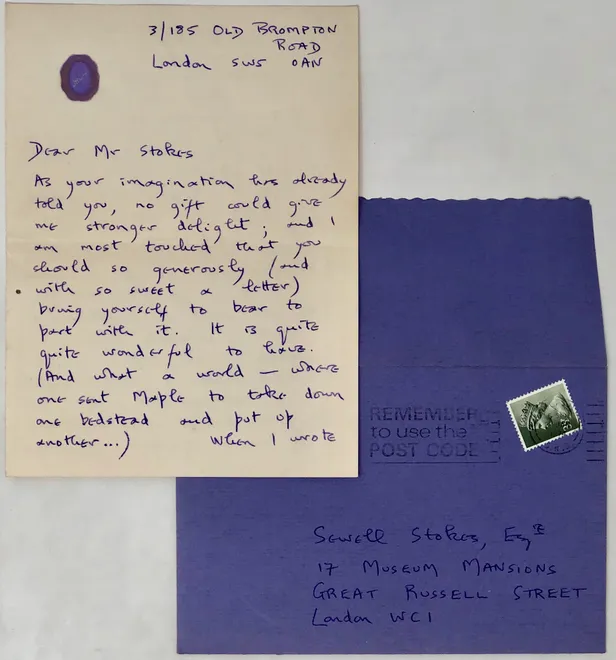 3/185 OLD BROMPTON
ROAD
London SW5 0AN
Dear Mr Stokes
As your imagination has already
told you, no gift could give
me stronger delight; and I
am most touched that you
should so generously (and
with so sweet a letter)
bring yourself to bear to
part with it. It is quite
quite wonderful to have.
(And what a world — where
one sent Maple to take down
one bedstead and put up
another...) When I wrote
REMEMBER
to use the
POST CODE
Sewell Stokes, Esqre
17 MUSEUM MANSIONS
GREAT RUSSELL STREET
London WC1